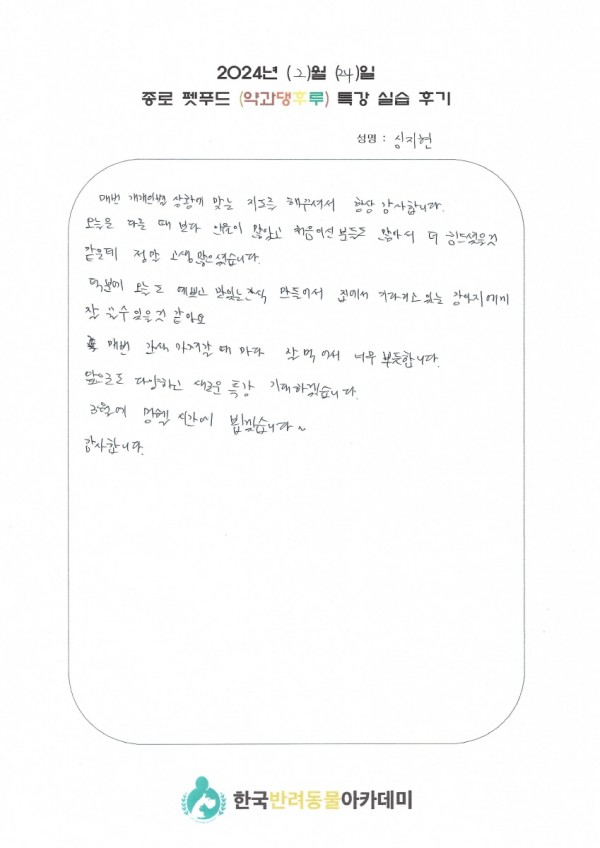 2024년 (2)월 (24)일
종로 펫푸드 (약과댕후루) 특강 실습 후기
성명 : 심지현
매번 개개인별 상황에 맞는 지도를 해주셔서 항상 감사합니다.
오늘은 다른 때 보다 인원이 많았고 처음이신 분들도 많아서 더 힘드셨을것
같은데 정말 고생 많으셨습니다.
덕분에 오늘도 예쁘고 맛있는 간식 만들어서 집에서 기다리고 있는 강아지에게
잘 줄수 있을것 같아요
매번 간식 가져갈 때 마다 잘 먹어서 너무 뿌듯합니다.
앞으로도 다양하고 새로운 특강 기대하겠습니다.
3월에 멍쉘 시간에 뵙겠습니다~
감사합니다.
한국반려동물아카데미